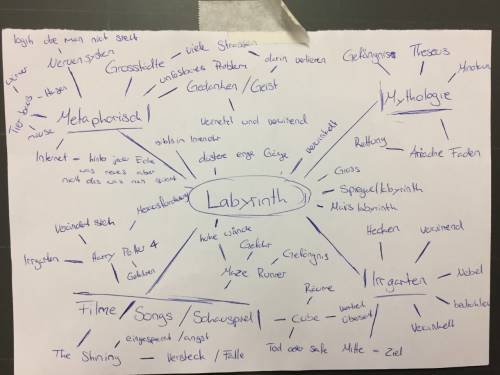 logik die man nicht sieht
Nervensystem
Grosstädte
viele Strassen
darin verlieren
unlösbares Problem
Gedanken / Geist
Gefängniss
Theseus
Minotaurus
Mythologie
Rettung
Ariadne Faden
Tier
mäuse
Metaphorisch
Vernetzt und verwirrend
Internet - hinter jeder Ecke
was neues aber
nicht das was man sucht
düstere enge Gänge
verwinkelt
Labyrinth
Gross
Spiegellabyrinth
Mais labyrinth
Herausforderung
Verändert sich
Irrgarten
Harry Potter 4
Gefahren
hohe Wände
Gefahr
Gefängnis
Maze Runner
Hecken
verwirrend
Irrgarten
Nobel
Verwinkelt
Mitte - Ziel
Räume
Filme / Songs / Schauspiel
Cube
Tod oder safe
The Shining
eingesperrt / angst
Versteck / Falle